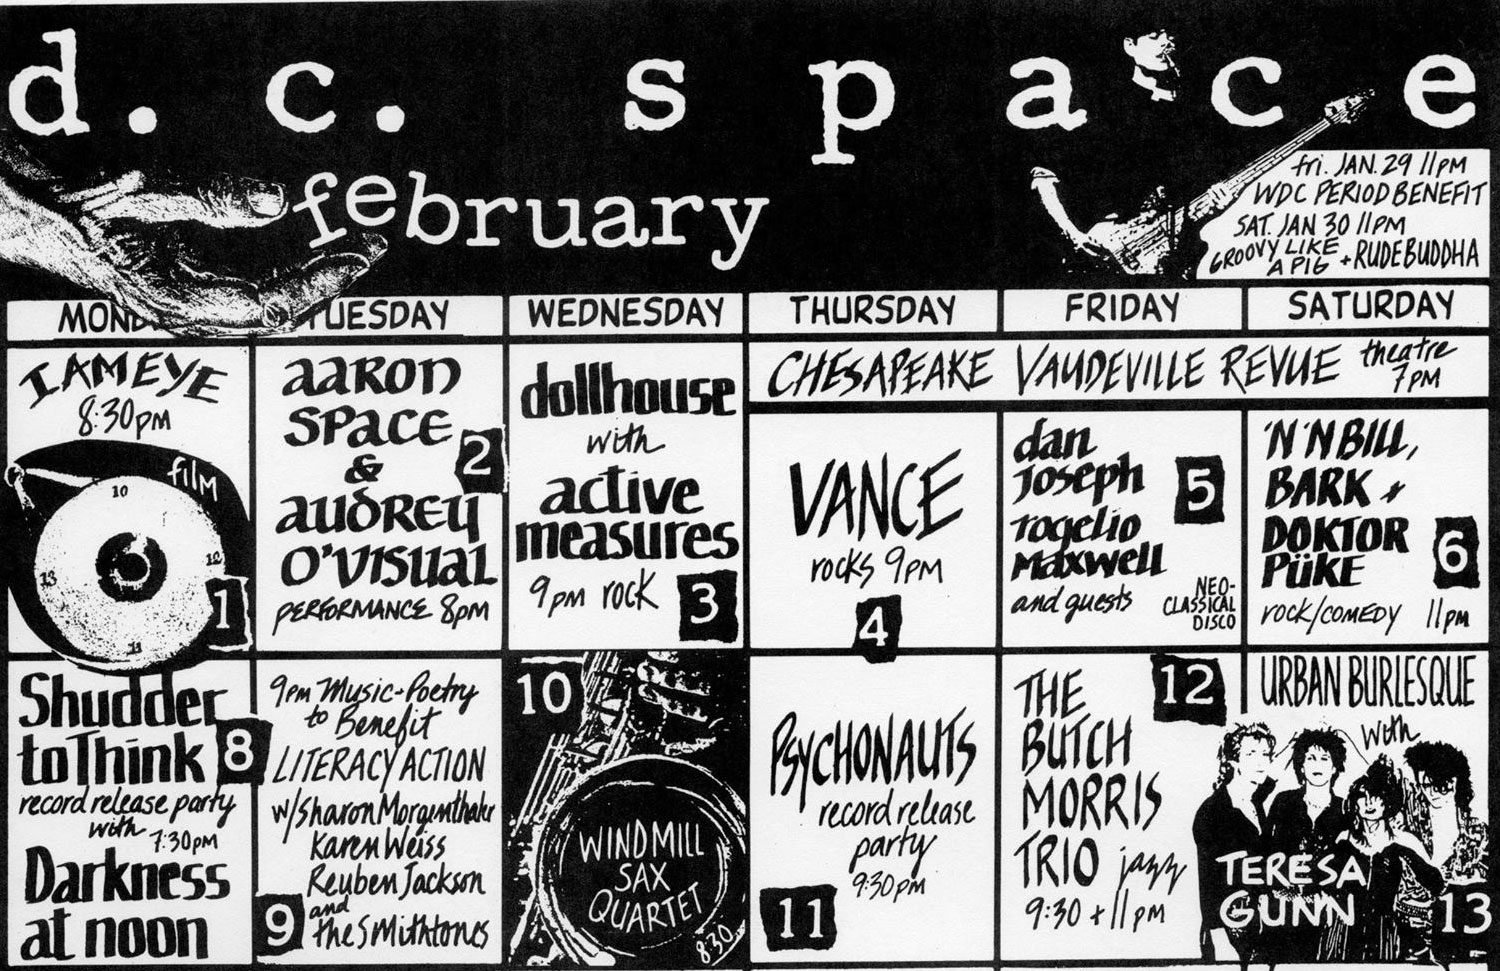 d. c. space
february
fri. JAN. 29 11PM
WDC PERIOD BENEFIT
SAT. JAN 30 11PM
GROOVY LIKE
A PIG + RUDE BUDDHA
TUESDAY
WEDNESDAY
THURSDAY
FRIDAY
SATURDAY
I AM EYE
8:30PM
film
10
12
13
11
1
aaron
space
&
audrey
o'visual
performance 8pm
2
dollhouse
with
active
measures
9pm rock
3
CHESAPEAKE VAUDEVILLE REVUE theatre
7PM
VANCE
rocks 9PM
4
dan
joseph
rogelio
maxwell
and guests
NEO-
CLASSICAL
DISCO
5
'N 'N BILL,
BARK &
DOKTOR
PÜKE
rock/comedy 11pm
6
Shudder
to Think
record release party
with
7:30pm
Darkness
at noon
8
9pm Music-Poetry
to Benefit
LITERACY ACTION
w/Sharon Morgenthaler
Karen Weiss
Reuben Jackson
and
the Smithtones
9
10
WINDMILL
SAX
QUARTET
8:30
PSYCHONAUTS
record release
party
9:30pm
11
THE
BUTCH
MORRIS
TRIO jazz
9:30 + 11 PM
12
URBAN BURLESQUE
with
TERESA
GUNN
13